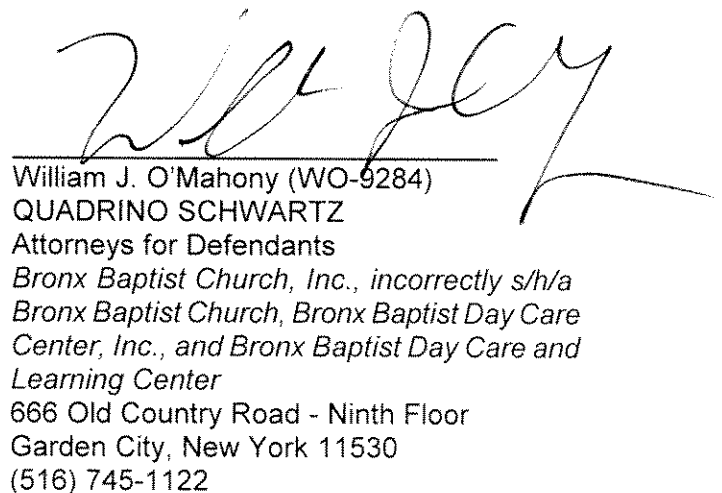 William J. O'Mahony (WO-9284)
QUADRINO SCHWARTZ
Attorneys for Defendants
Bronx Baptist Church, Inc., incorrectly s/h/a
Bronx Baptist Church, Bronx Baptist Day Care
Center, Inc., and Bronx Baptist Day Care and
Learning Center
666 Old Country Road - Ninth Floor
Garden City, New York 11530
(516) 745-1122